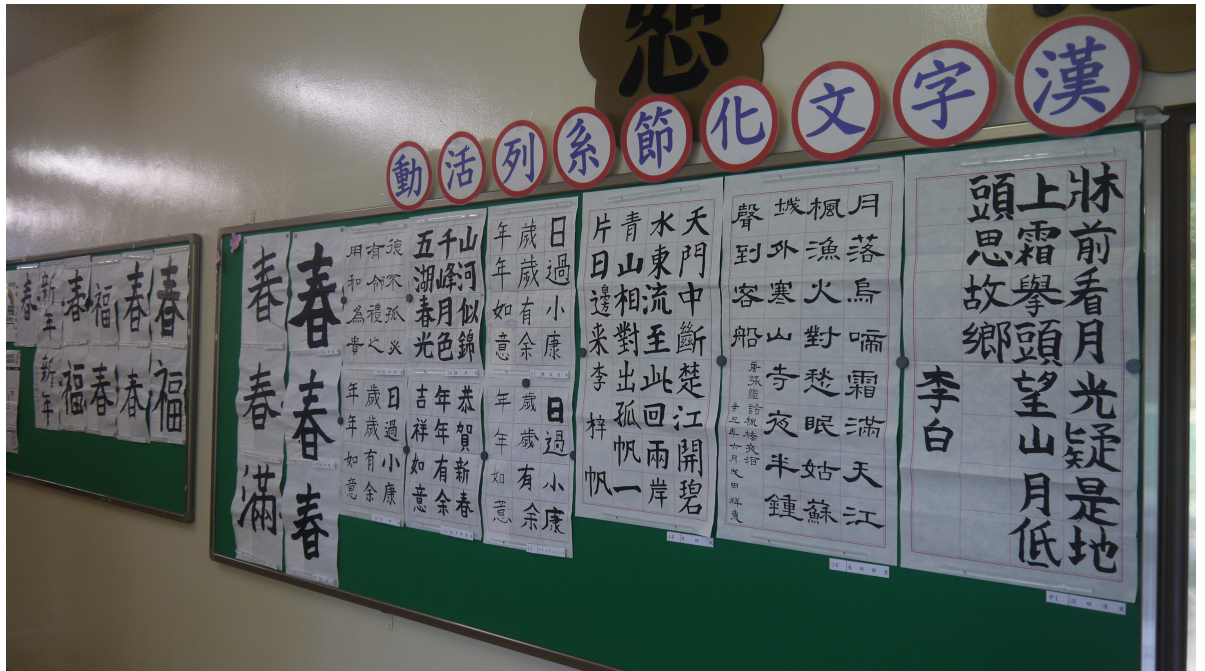 恕
漢字文化節系列活動
牀前看月光疑是地
上霜舉頭望山月低
頭思故鄉
李白
月落烏啼霜滿天江
楓漁火對愁眠姑蘇
城外寒山寺夜半鍾
聲到客船
張繼詩楓橋夜泊
辛丑年六月
天門中斷楚江開碧
水東流至此回兩岸
青山相對出孤帆一
片日邊来李梓帆
日過小康
歲歲有余
年年如意
日過小康
歲歲有余
年年如意
山河似錦
千峰月色
五湖春光
恭賀新春
年年有余
吉祥如意
德不孤必
有鄰禮之
用和為貴
日過小康
歲歲有余
年年如意
春
春
春
春
春
滿
春
福
春
春
福
春
春
福
新年
新年
春